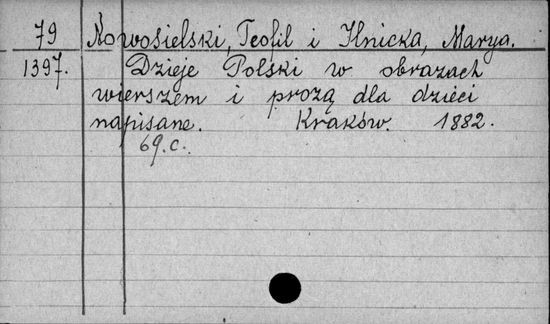 79 Nowosielski, Teofil i Ilnicka, Marya.
1397. Dzieje Polski w obrazach
wierszem i prozą dla dzieci
napisane. Kraków. 1882.
69.c.